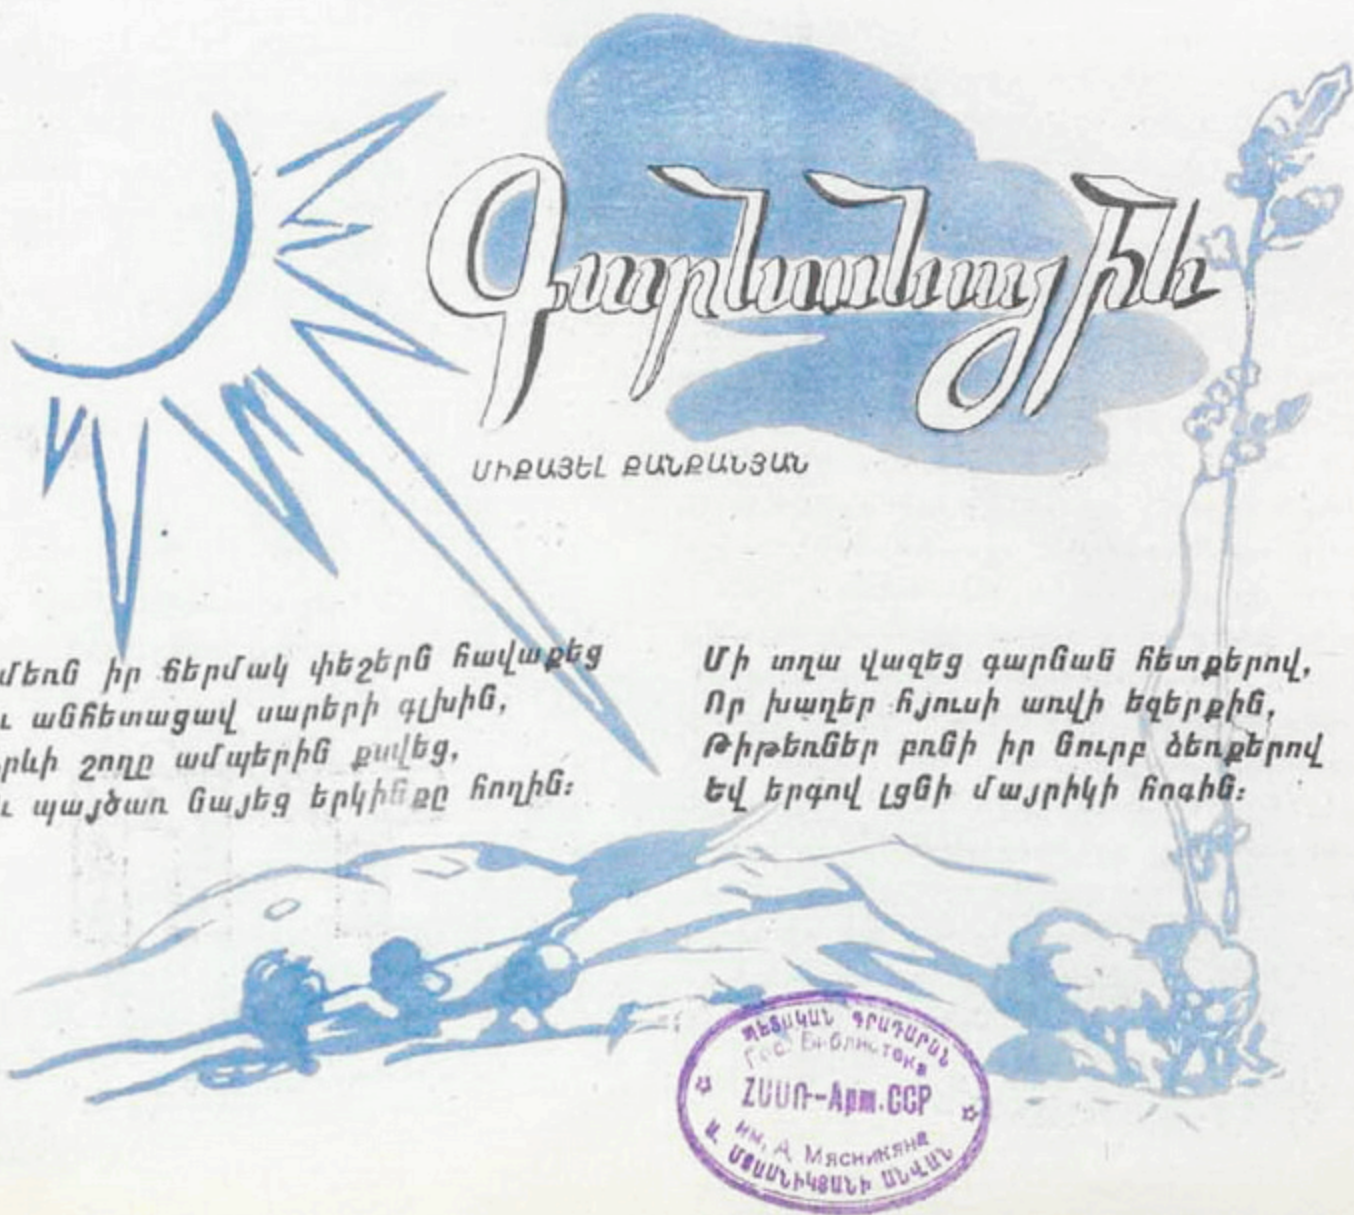 Գարնանային
ՄԻՔԱՅԵԼ ՔԱՆՔԱՆՅԱՆ
մեռն իր ճերմակ փեշերն հավաքեց
ւ անհետացավ սարերի գլխին,
րևի շողը ամպերին քսվեց,
ւ պայծառ նայեց երկինքը հողին:
Մի տղա վազեց գարնան հետքերով,
Որ խաղեր հյուսի առվի եզերքին,
Թիթեռներ բռնի իր նուրբ ձեռքերով
Եվ երգով լցնի մայրիկի հոգին:
ՊԵՏԱԿԱՆ ԳՐԱԴԱՐԱՆ
Гос. Библиотека
ՀՍՍՌ-Арм.ССР
им. А. Мясникяна
Ա. ՄՅԱՍՆԻԿՅԱՆԻ ԱՆՎԱՆ